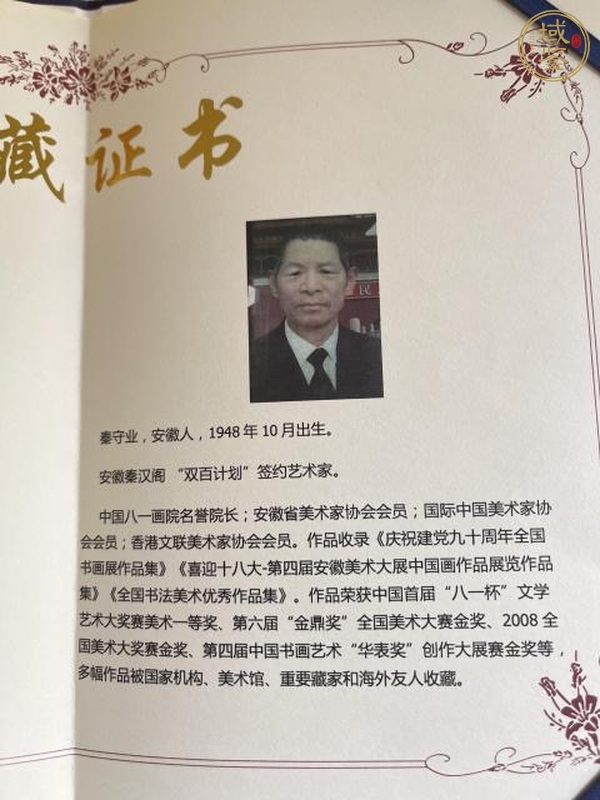 域鉴
藏证书
民
秦守业，安徽人，1948年10月出生。
安徽秦汉阁 “双百计划”签约艺术家。
中国八一画院名誉院长；安徽省美术家协会会员；国际中国美术家协
会会员；香港文联美术家协会会员。作品收录《庆祝建党九十周年全国
书画展作品集》《喜迎十八大-第四届安徽美术大展中国画作品展览作品
集》《全国书法美术优秀作品集》。作品荣获中国首届“八一杯”文学
艺术大奖赛美术一等奖、第六届“金鼎奖”全国美术大赛金奖、2008全
国美术大奖赛金奖、第四届中国书画艺术“华表奖”创作大展赛金奖等，
多幅作品被国家机构、美术馆、重要藏家和海外友人收藏。